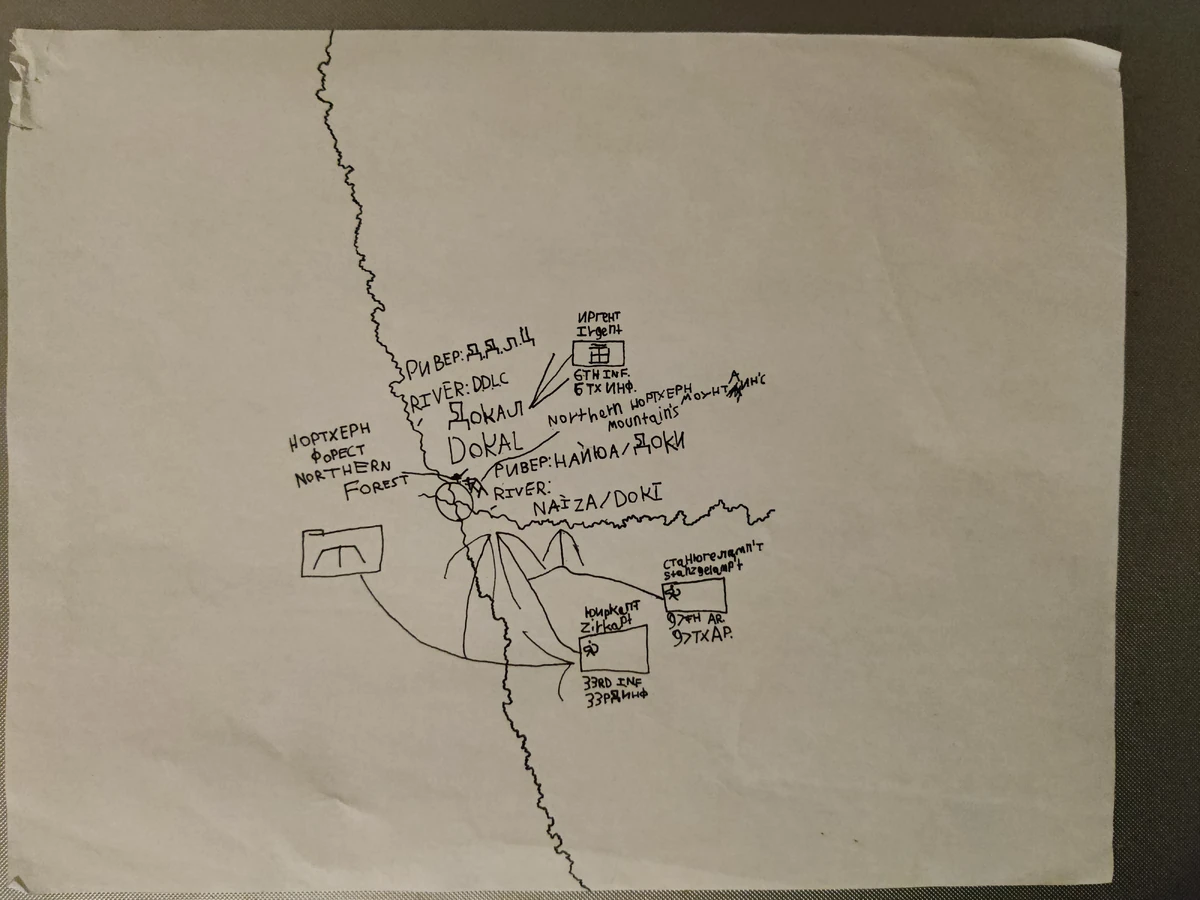 ИРГЕНТ
Irgent
6TH INF.
6 ТХ ИНФ.
РИВЕР: Д.Д.Л.Ц
RIVER: DDLC
ДОКАЛ
DOKAL
Northern НОРТХЕРН
mountain's МОУНТАИН'С
НОРТХЕРН
ФОРЕСТ
NORTHERN
FOREST
РИВЕР: НАЙЮА/ДОКИ
RIVER:
NAÏZA/DOKI
СТАНЮГЕЛАМП'Т
Stanzgelamp't
9>TH AR.
9>ТХ АР.
ЮИРКАПТ
Zirkapt
33RD INF
33РД ИНФ